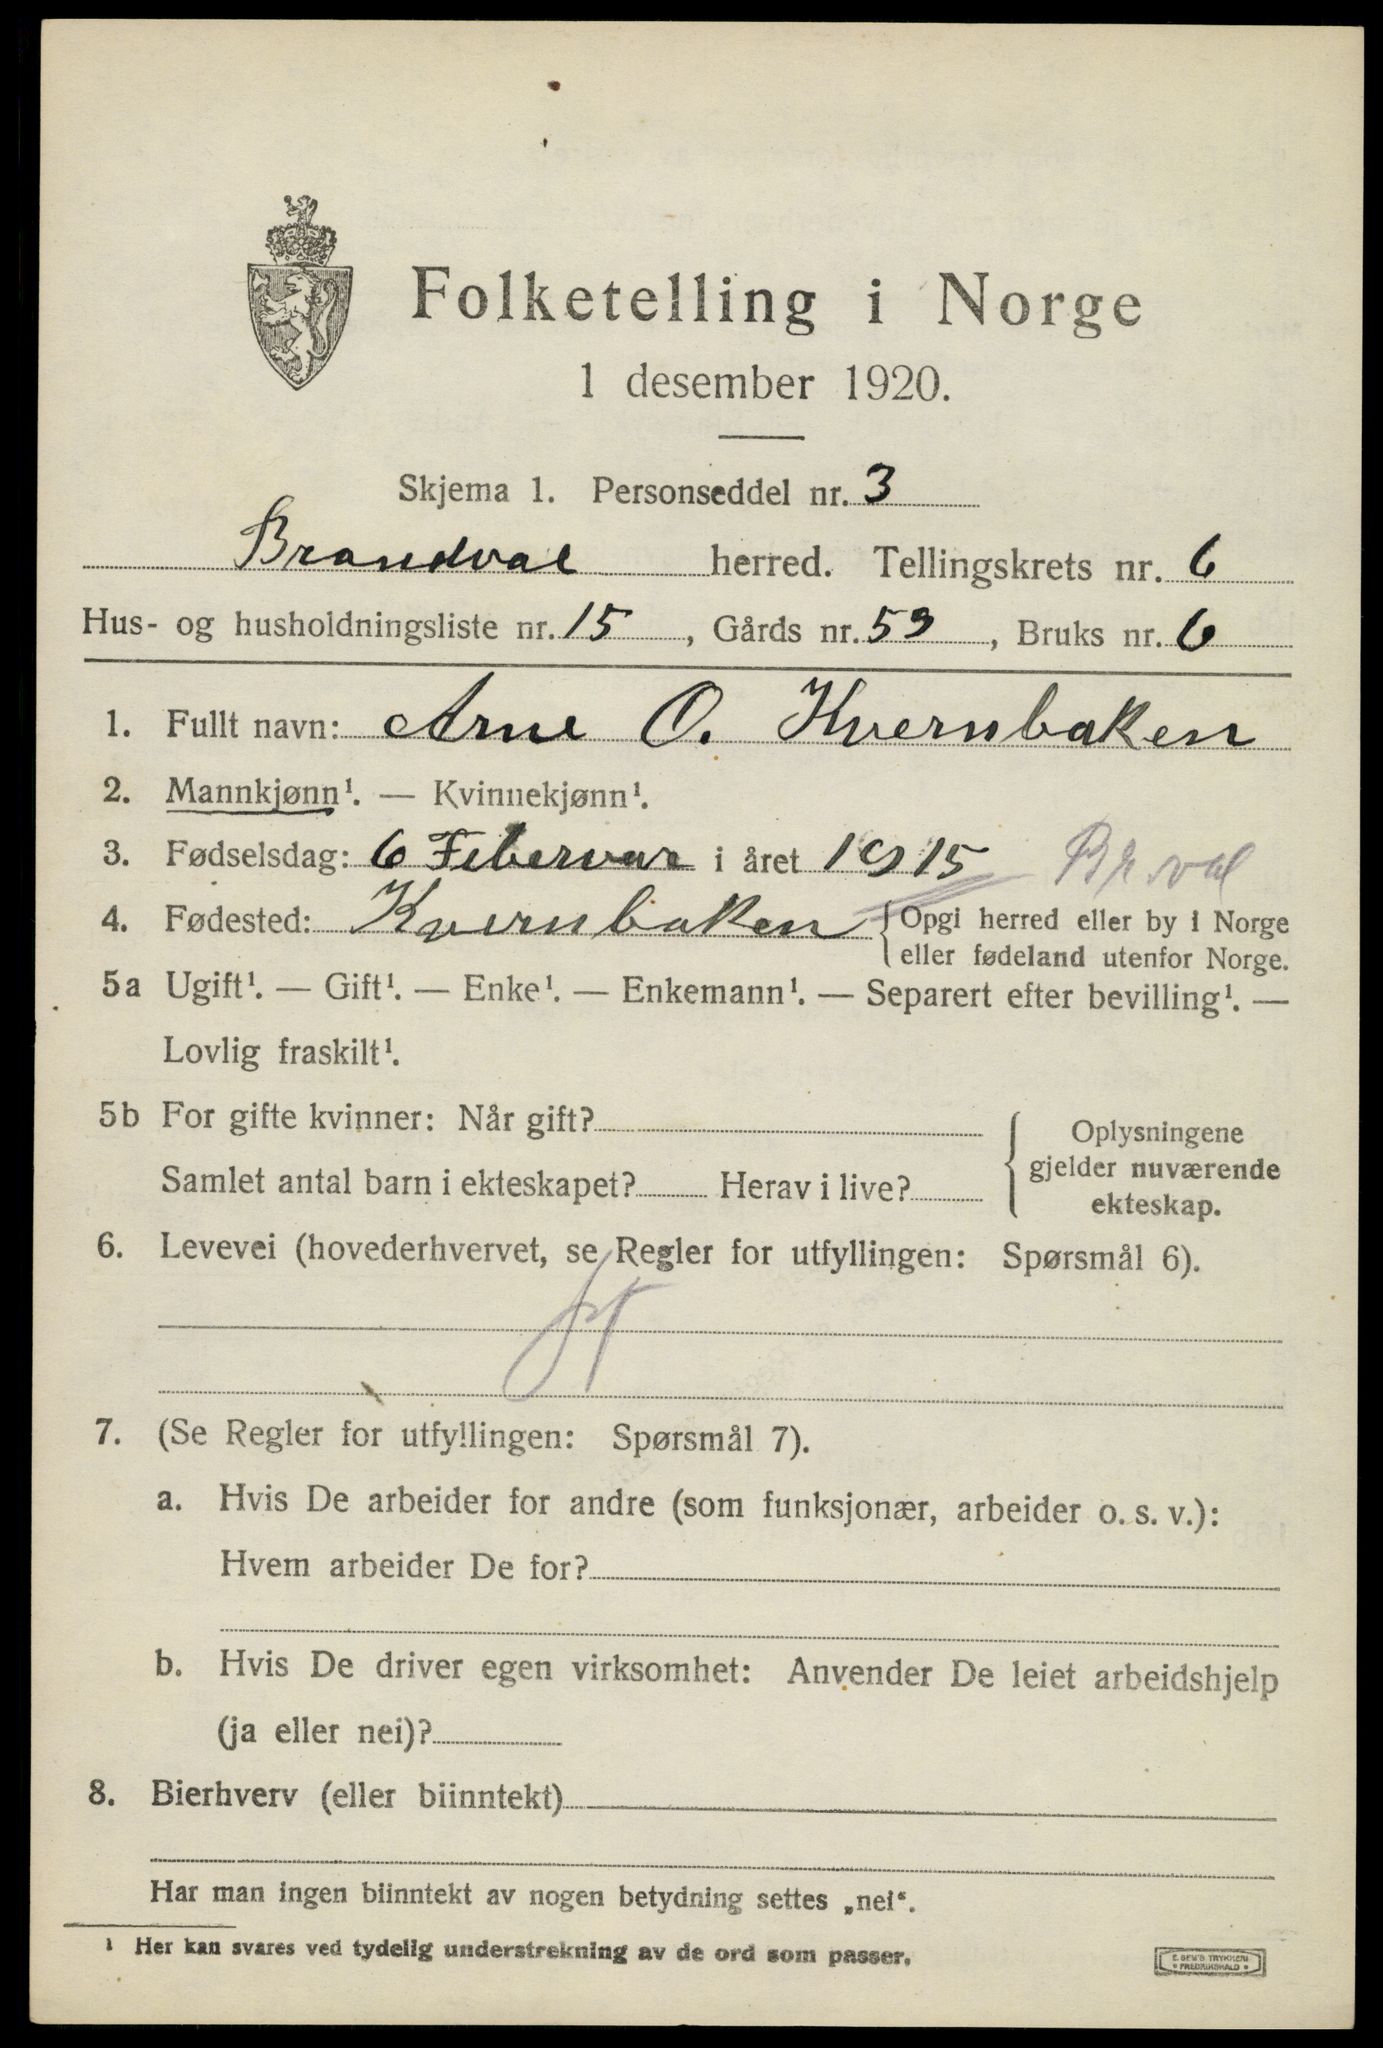 Folketelling i Norge
1 desember 1920.
Skjema 1. Personseddel nr. 3
Brandval herred. Tellingskrets nr. 6
Hus- og husholdningsliste nr. 15, Gårds nr. 59, Bruks nr. 6
1. Fullt navn: Arne O. Kvernbaken
2. Mannkjønn¹. — Kvinnekjønn¹.
3. Fødselsdag: 6 Febervar i året 1915 Br.val
4. Fødested: Kvernbaken {Opgi herred eller by i Norge
eller fødeland utenfor Norge.
5a Ugift¹. — Gift¹. — Enke¹. — Enkemann¹. — Separert efter bevilling¹. —
Lovlig fraskilt¹.
5b For gifte kvinner: Når gift? Oplysningene
gjelder nuværende
Samlet antal barn i ekteskapet? Herav i live? ekteskap.
6. Levevei (hovederhvervet, se Regler for utfyllingen: Spørsmål 6).
7. (Se Regler for utfyllingen: Spørsmål 7).
a. Hvis De arbeider for andre (som funksjonær, arbeider o. s. v.):
Hvem arbeider De for?
b. Hvis De driver egen virksomhet: Anvender De leiet arbeidshjelp
(ja eller nei)?
8. Bierhverv (eller biinntekt)
Har man ingen biinntekt av nogen betydning settes „nei“.
¹ Her kan svares ved tydelig understrekning av de ord som passer.
E. SEM'S TRYKKERI
• FREDRIKSHALD •